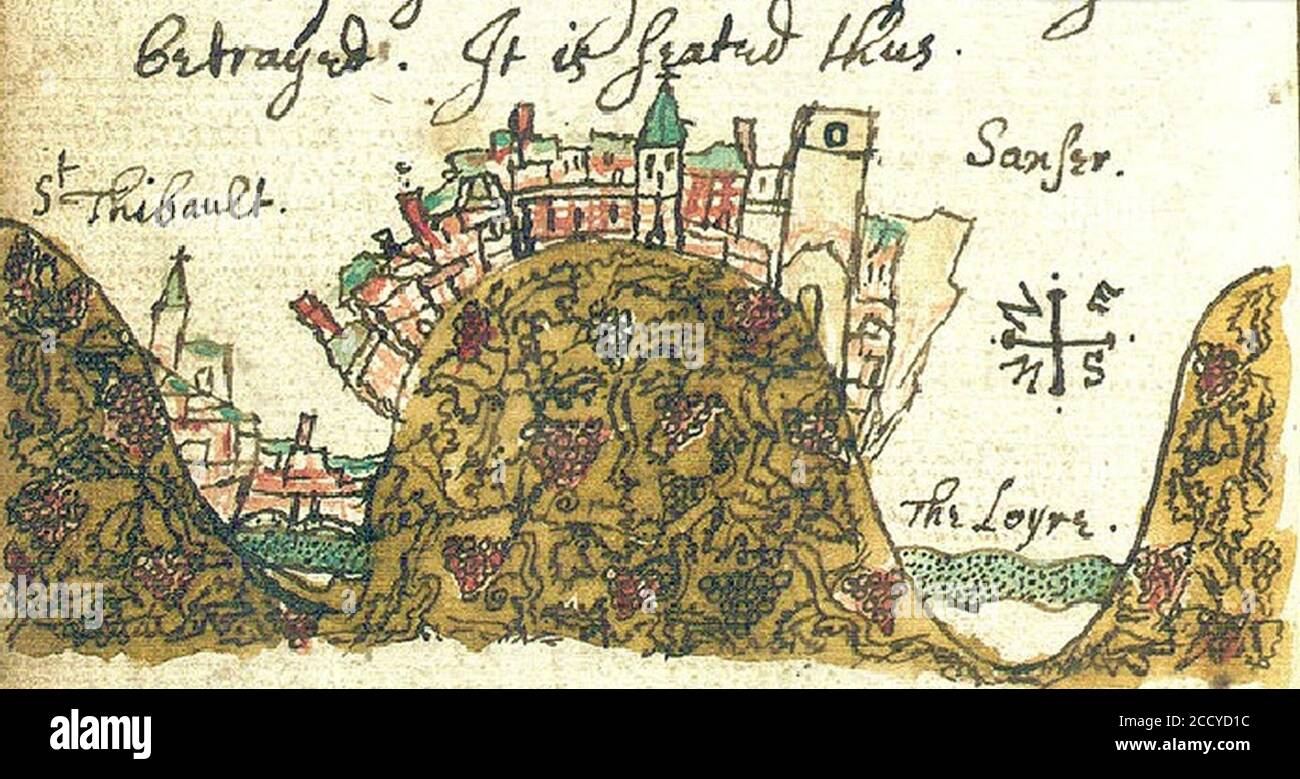 betrayed. It is seated thus.
St Thibault.
Sanser.
N E
W S
The Loyre.
alamy
Image ID: 2CCYD1C
www.alamy.com